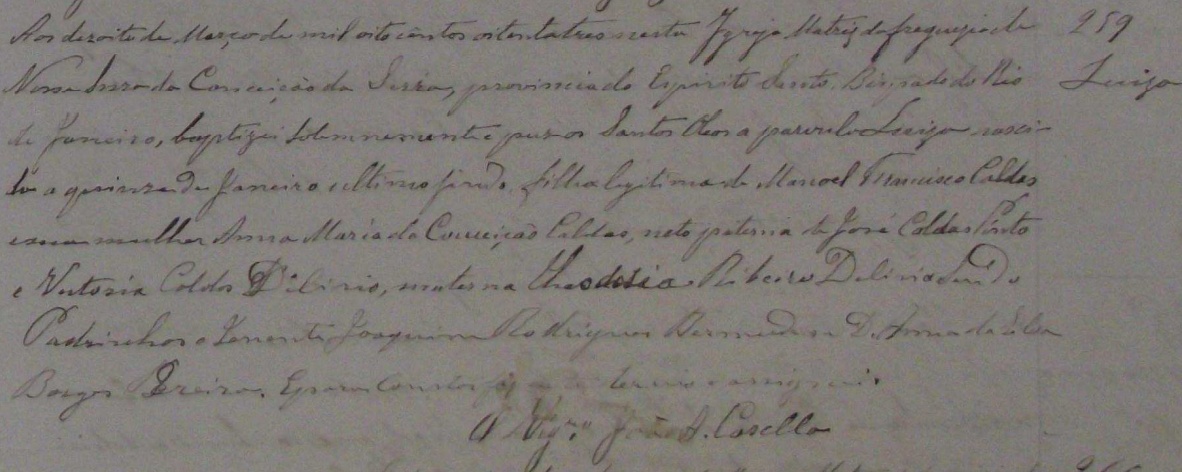 Aos dezoito de Março de mil oito centos oitenta tres nesta Igreja Matriz da freguezia de 259
Nossa Snra da Conceição da Serra, provincia do Espirito Santo, Bispado do Rio Luiza
de Janeiro, baptizei solemnemente e puz os Santos Oleos a parvula Luiza nasci-
da a quinze de Janeiro ultimo findo, filha legitima de Manoel Francisco Caldas
e sua mulher Anna Maria da Conceição Caldas, neta paterna de José Caldas Pinto
e Victoria Caldas materna Theodosia Ribeiro sendo
Padrinhos o Tenente Joaquim Rodrigues D. Anna da
Borges Pereira. E para constar fiz este termo e assignei.
O Vigrº João A. Casella